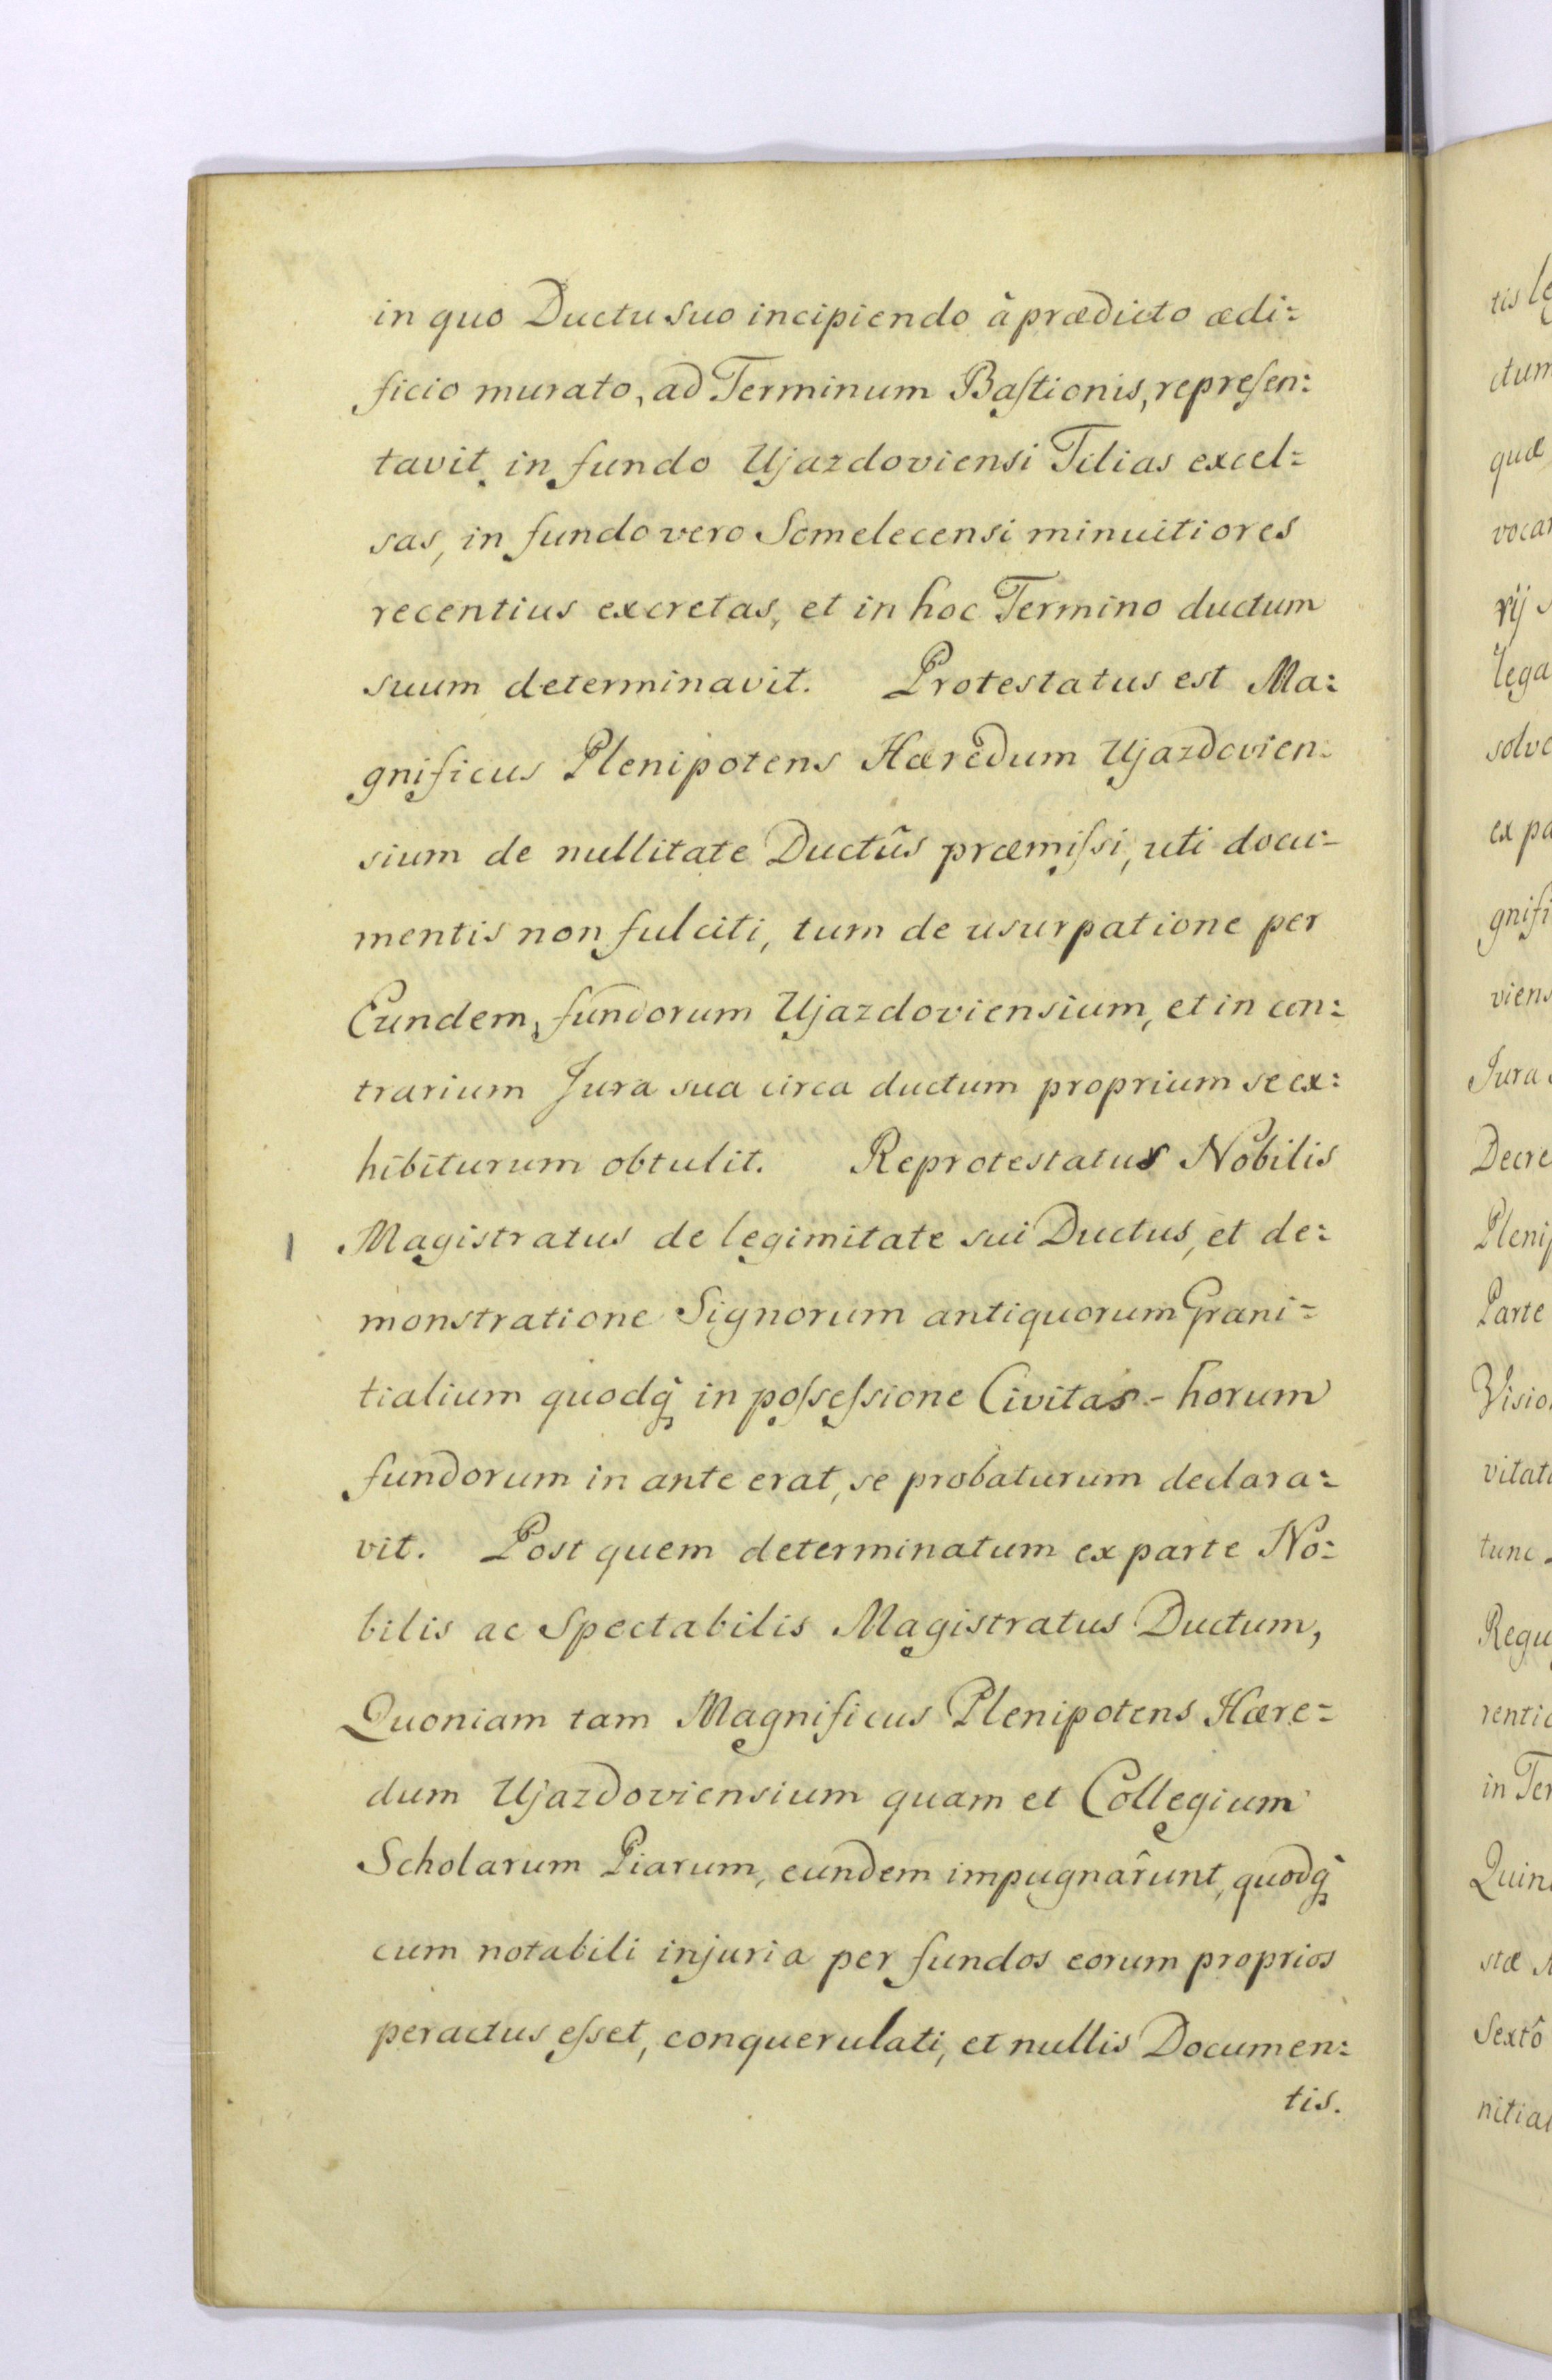 in quo Ductu suo incipiendo à prædicto ædi=
ficio murato, ad Terminum Baſtionis, repreſen=
tavit in fundo Ujazdoviensi Tilias excel=
sas, in fundo vero Somelecensi minuitiores
recentius excretas, et in hoc Termino ductum
suum determinavit. Protestatus est Ma=
gnificus Plenipotens Hæredum Ujazdovien=
sium de nullitate Ductûs præmiſsi, uti docu-
mentis non fulciti, tum de usurpatione per
Eundem, fundorum Ujazdoviensium, et in con=
trarium Jura sua circa ductum proprium se ex=
hibiturum obtulit. Reprotestatus Nobilis
Magistratus de legimitate sui Ductus, et de=
monstratione Signorum antiquorum Grani=
tialium quodq̀ in poſseſsione Civitas - horum
fundorum in ante erat, se probaturum declara=
vit. Post quem determinatum ex parte No=
bilis ac Spectabilis Magistratus Ductum,
Quoniam tam Magnificus Plenipotens Hære=
dum Ujazdoviensium quam et Collegium
Scholarum Piarum, eundem impugnârunt, quodq̀
cum notabili injuria per fundos eorum proprios
peractus eſset, conquerulati, et nullis Documen=
tis.
tis
ctum
quæ
vocar
rij
lega
solve
ex pa
gnifi
viens
Jura
Decre
Plenip
Parte
Visio
vitati
tunc
Regu
rentic
in Ter
Quin
stæ
Sextô
nitial